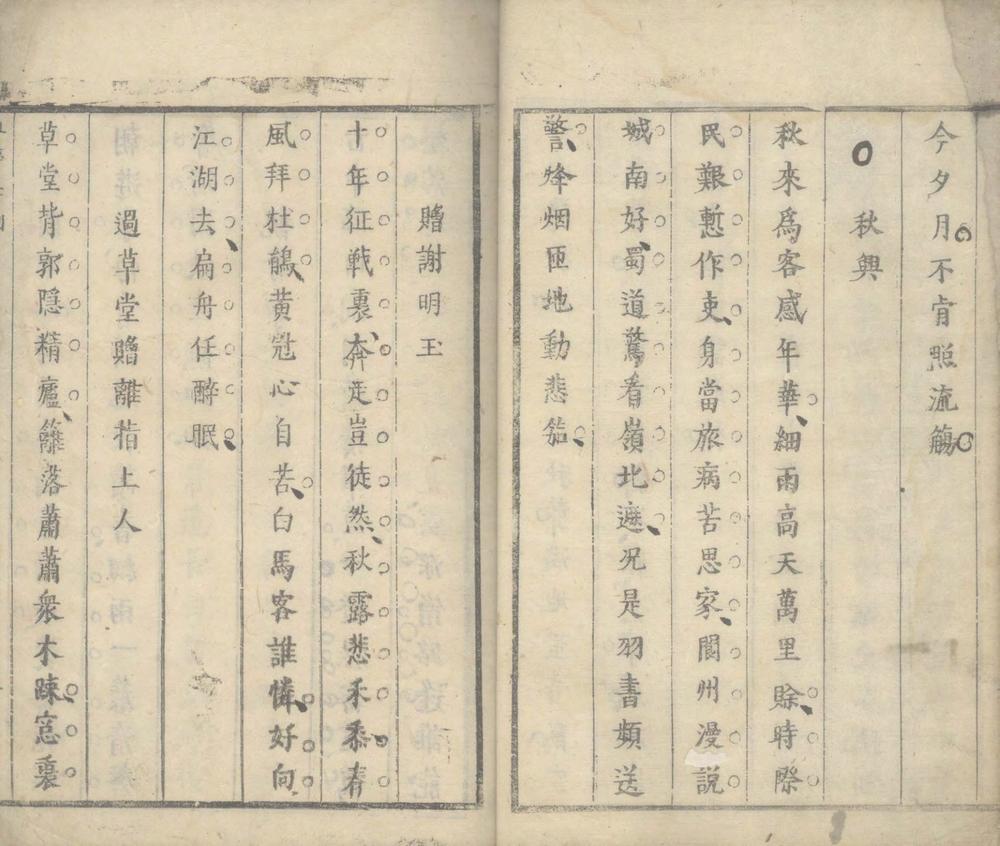 今夕月不肯照流觴
秋興
秋來爲客感年華細雨高天萬里賖時際
民艱慙作吏身當旅病苦思家閬州漫說
城南好蜀道驚看嶺北遮况是羽書頻送
警烽烟匝地動悲笳
贈謝明玉
十年征戰裏奔走豈徒然秋露悲禾黍春
風拜杜鵑黄冠心自苦白馬客誰憐好向
江湖去扁舟任醉眠
過草堂贈離指上人
草堂背郭隠精廬籬落蕭蕭衆木踈窓裏